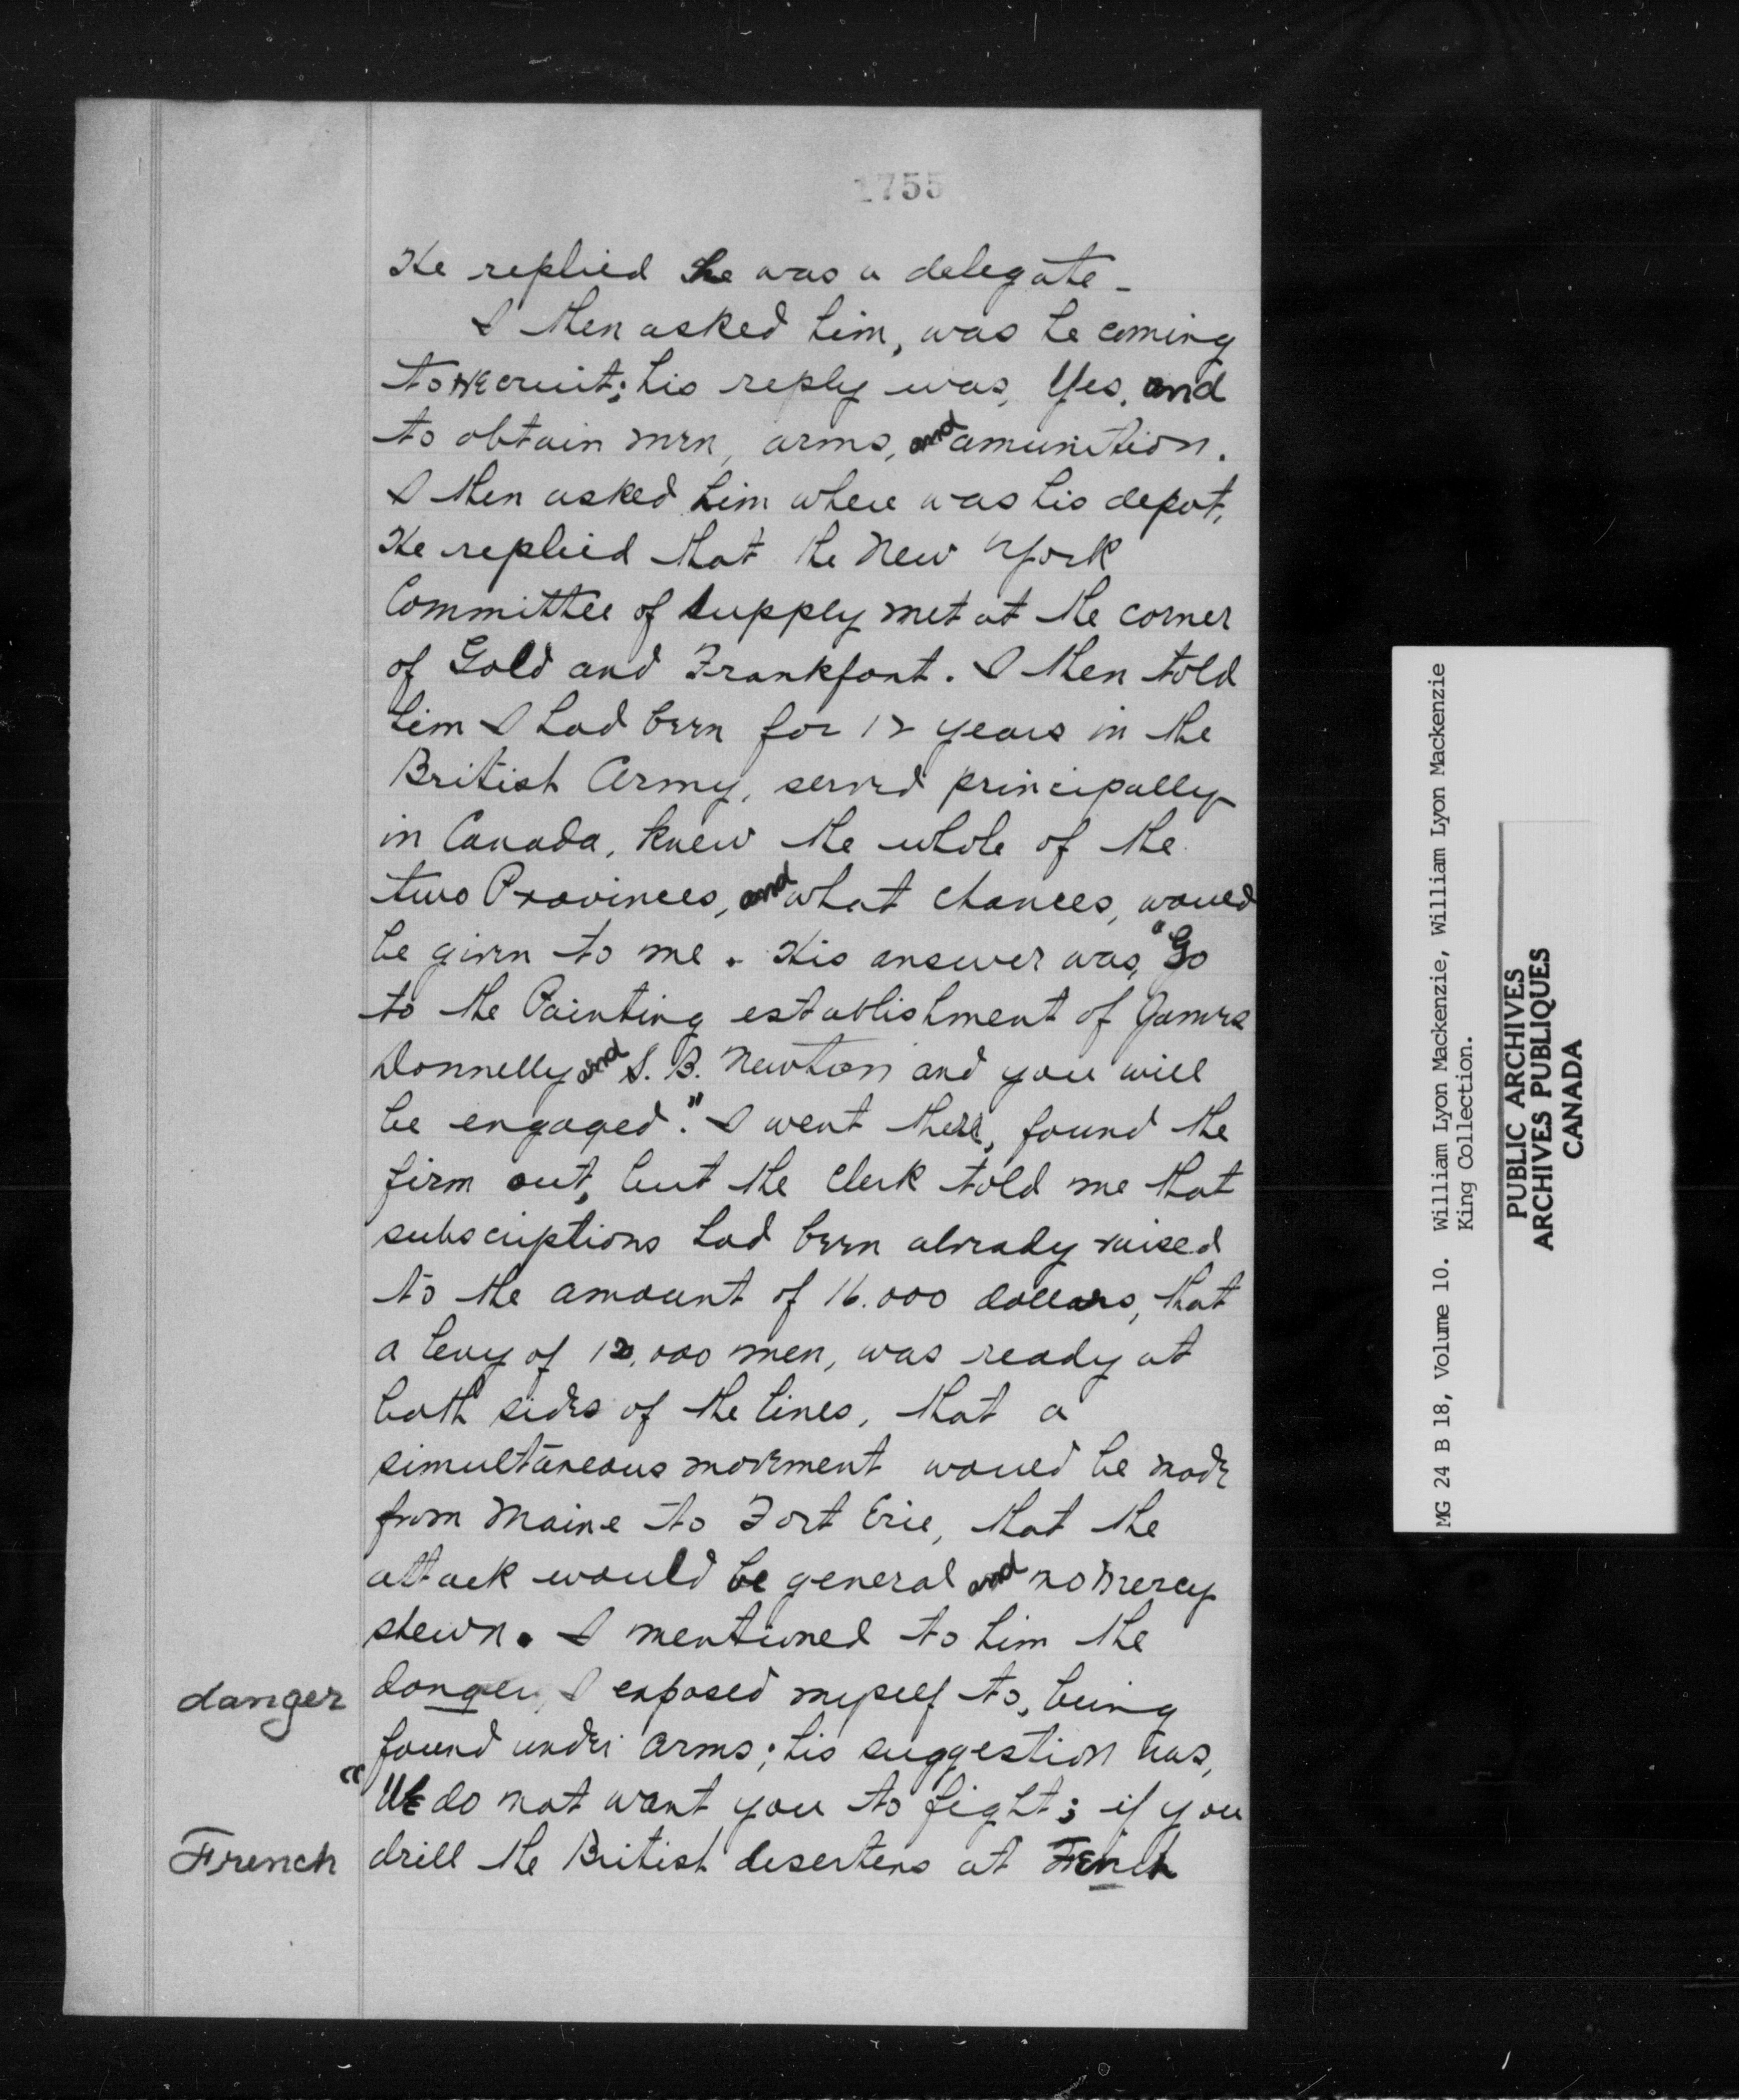 1755
He replied he was a delegate -
I then asked him, was he coming
to recruit; his reply was, Yes, and
to obtain men, arms, and amunition.
I then asked him where was his depot,
He replied that the New York
Committee of Supply met at the corner
of Gold and Frankfont. I then told
him I had been for 12 years in the
British Army, served principally
in Canada, knew the whole of the
two Provinces, and what chances, would
be given to me. His answer was, "Go
to the Painting establishment of James
Donnelly and S. B. Newton and you will
be engaged." I went there, found the
firm out, but the Clerk told me that
subscriptions had been already raised
to the amount of 16.000 dollars, that
a levy of 12,000 men, was ready at
both sides of the lines, that a
simultaneous movement would be made
from Maine to Fort Erie, that the
attack would be general and no mercy
shewn. I mentioned to him the
danger danger, I exposed myself to, being
found under arms; his suggestion was,
"We do not want you to fight; if you
French drill the British deserters at French
MG 24 B 18, Volume 10. William Lyon Mackenzie, William Lyon Mackenzie
King Collection.
PUBLIC ARCHIVES
ARCHIVES PUBLIQUES
CANADA